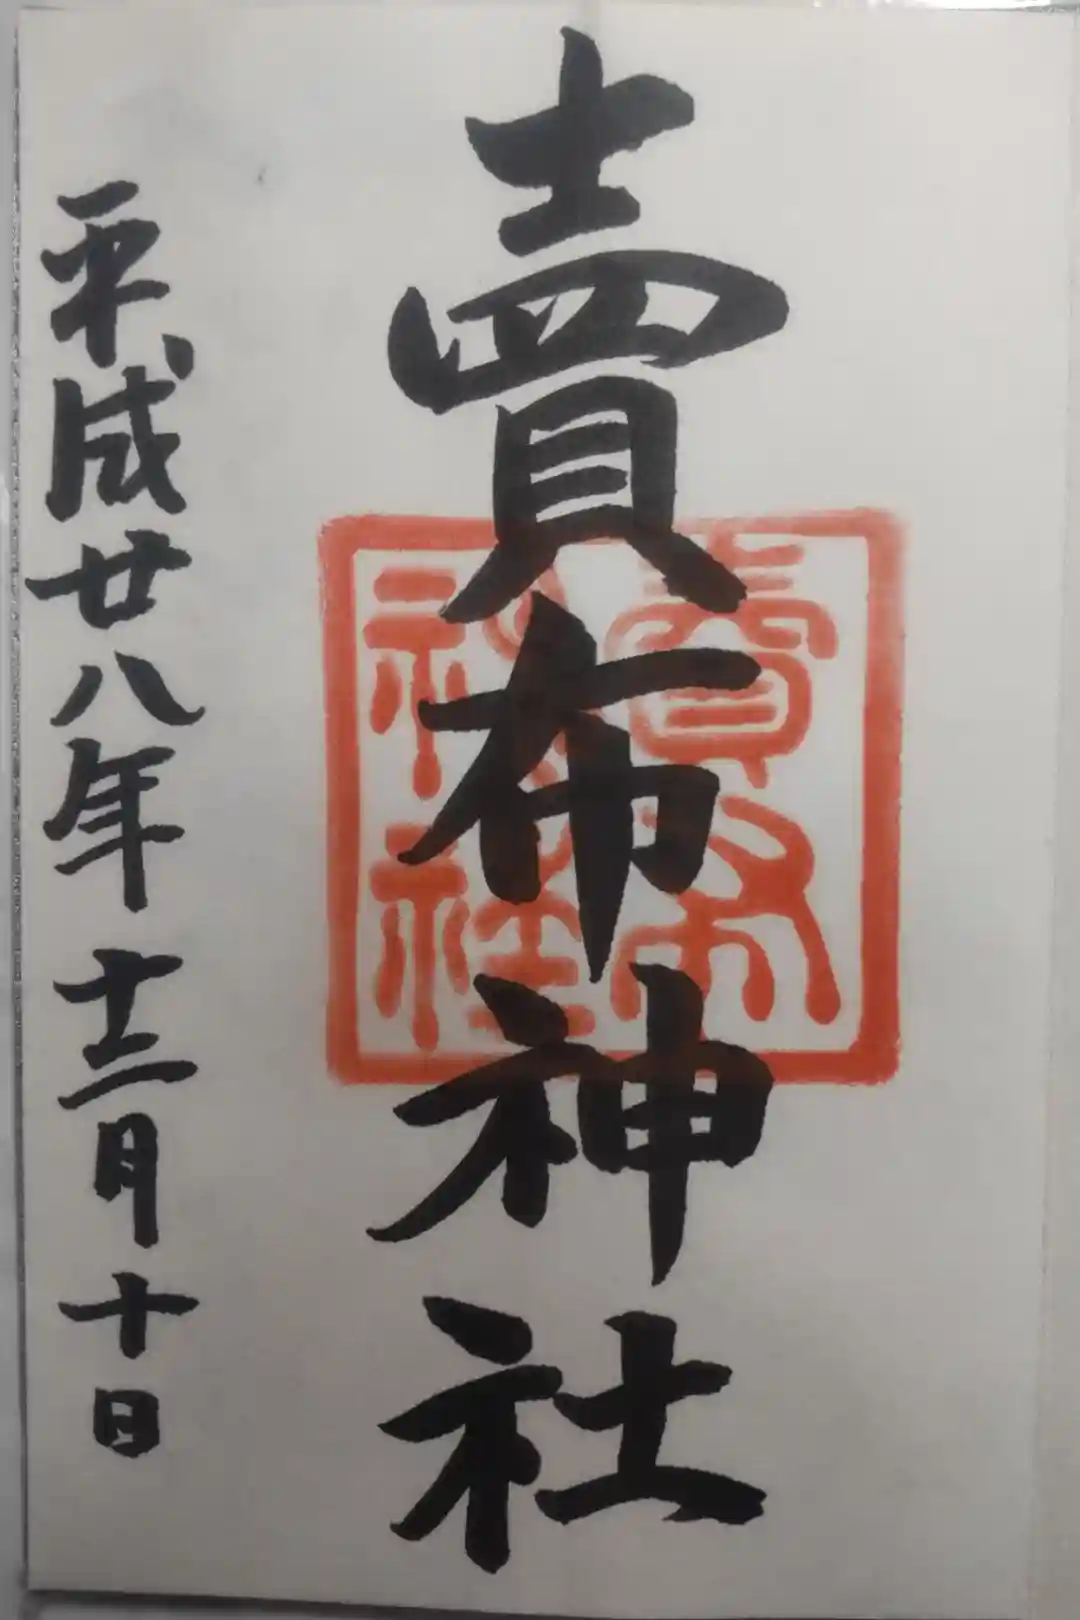 賣布神社
賣布
神社
平成廿八年十二月十日